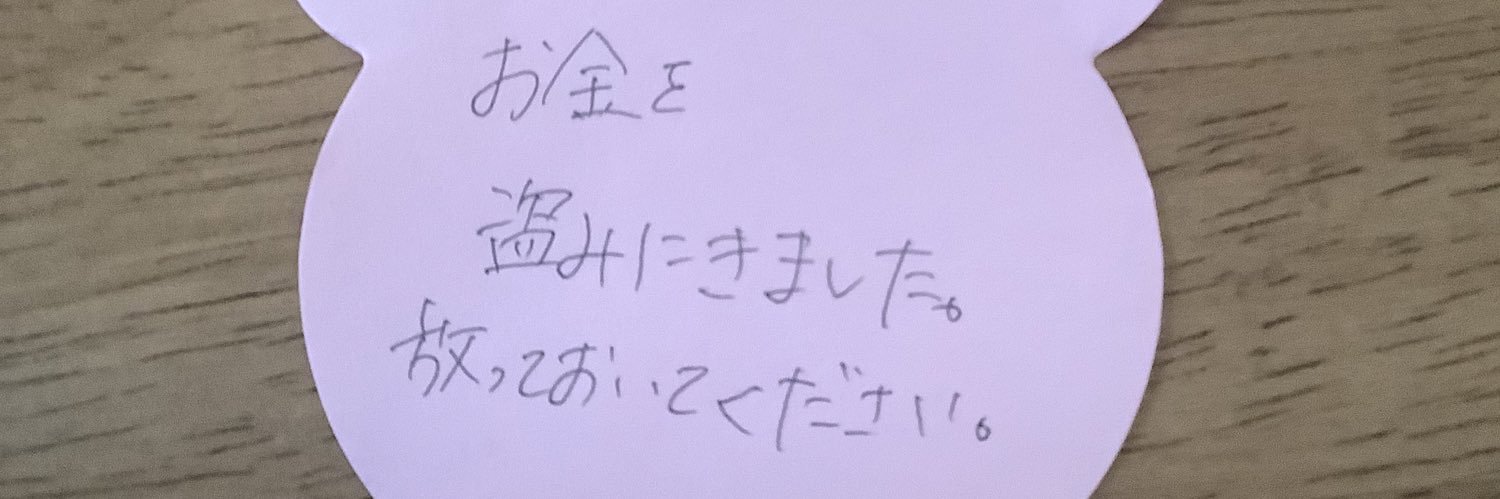 お金を
盗みにきました。
放っておいてください。